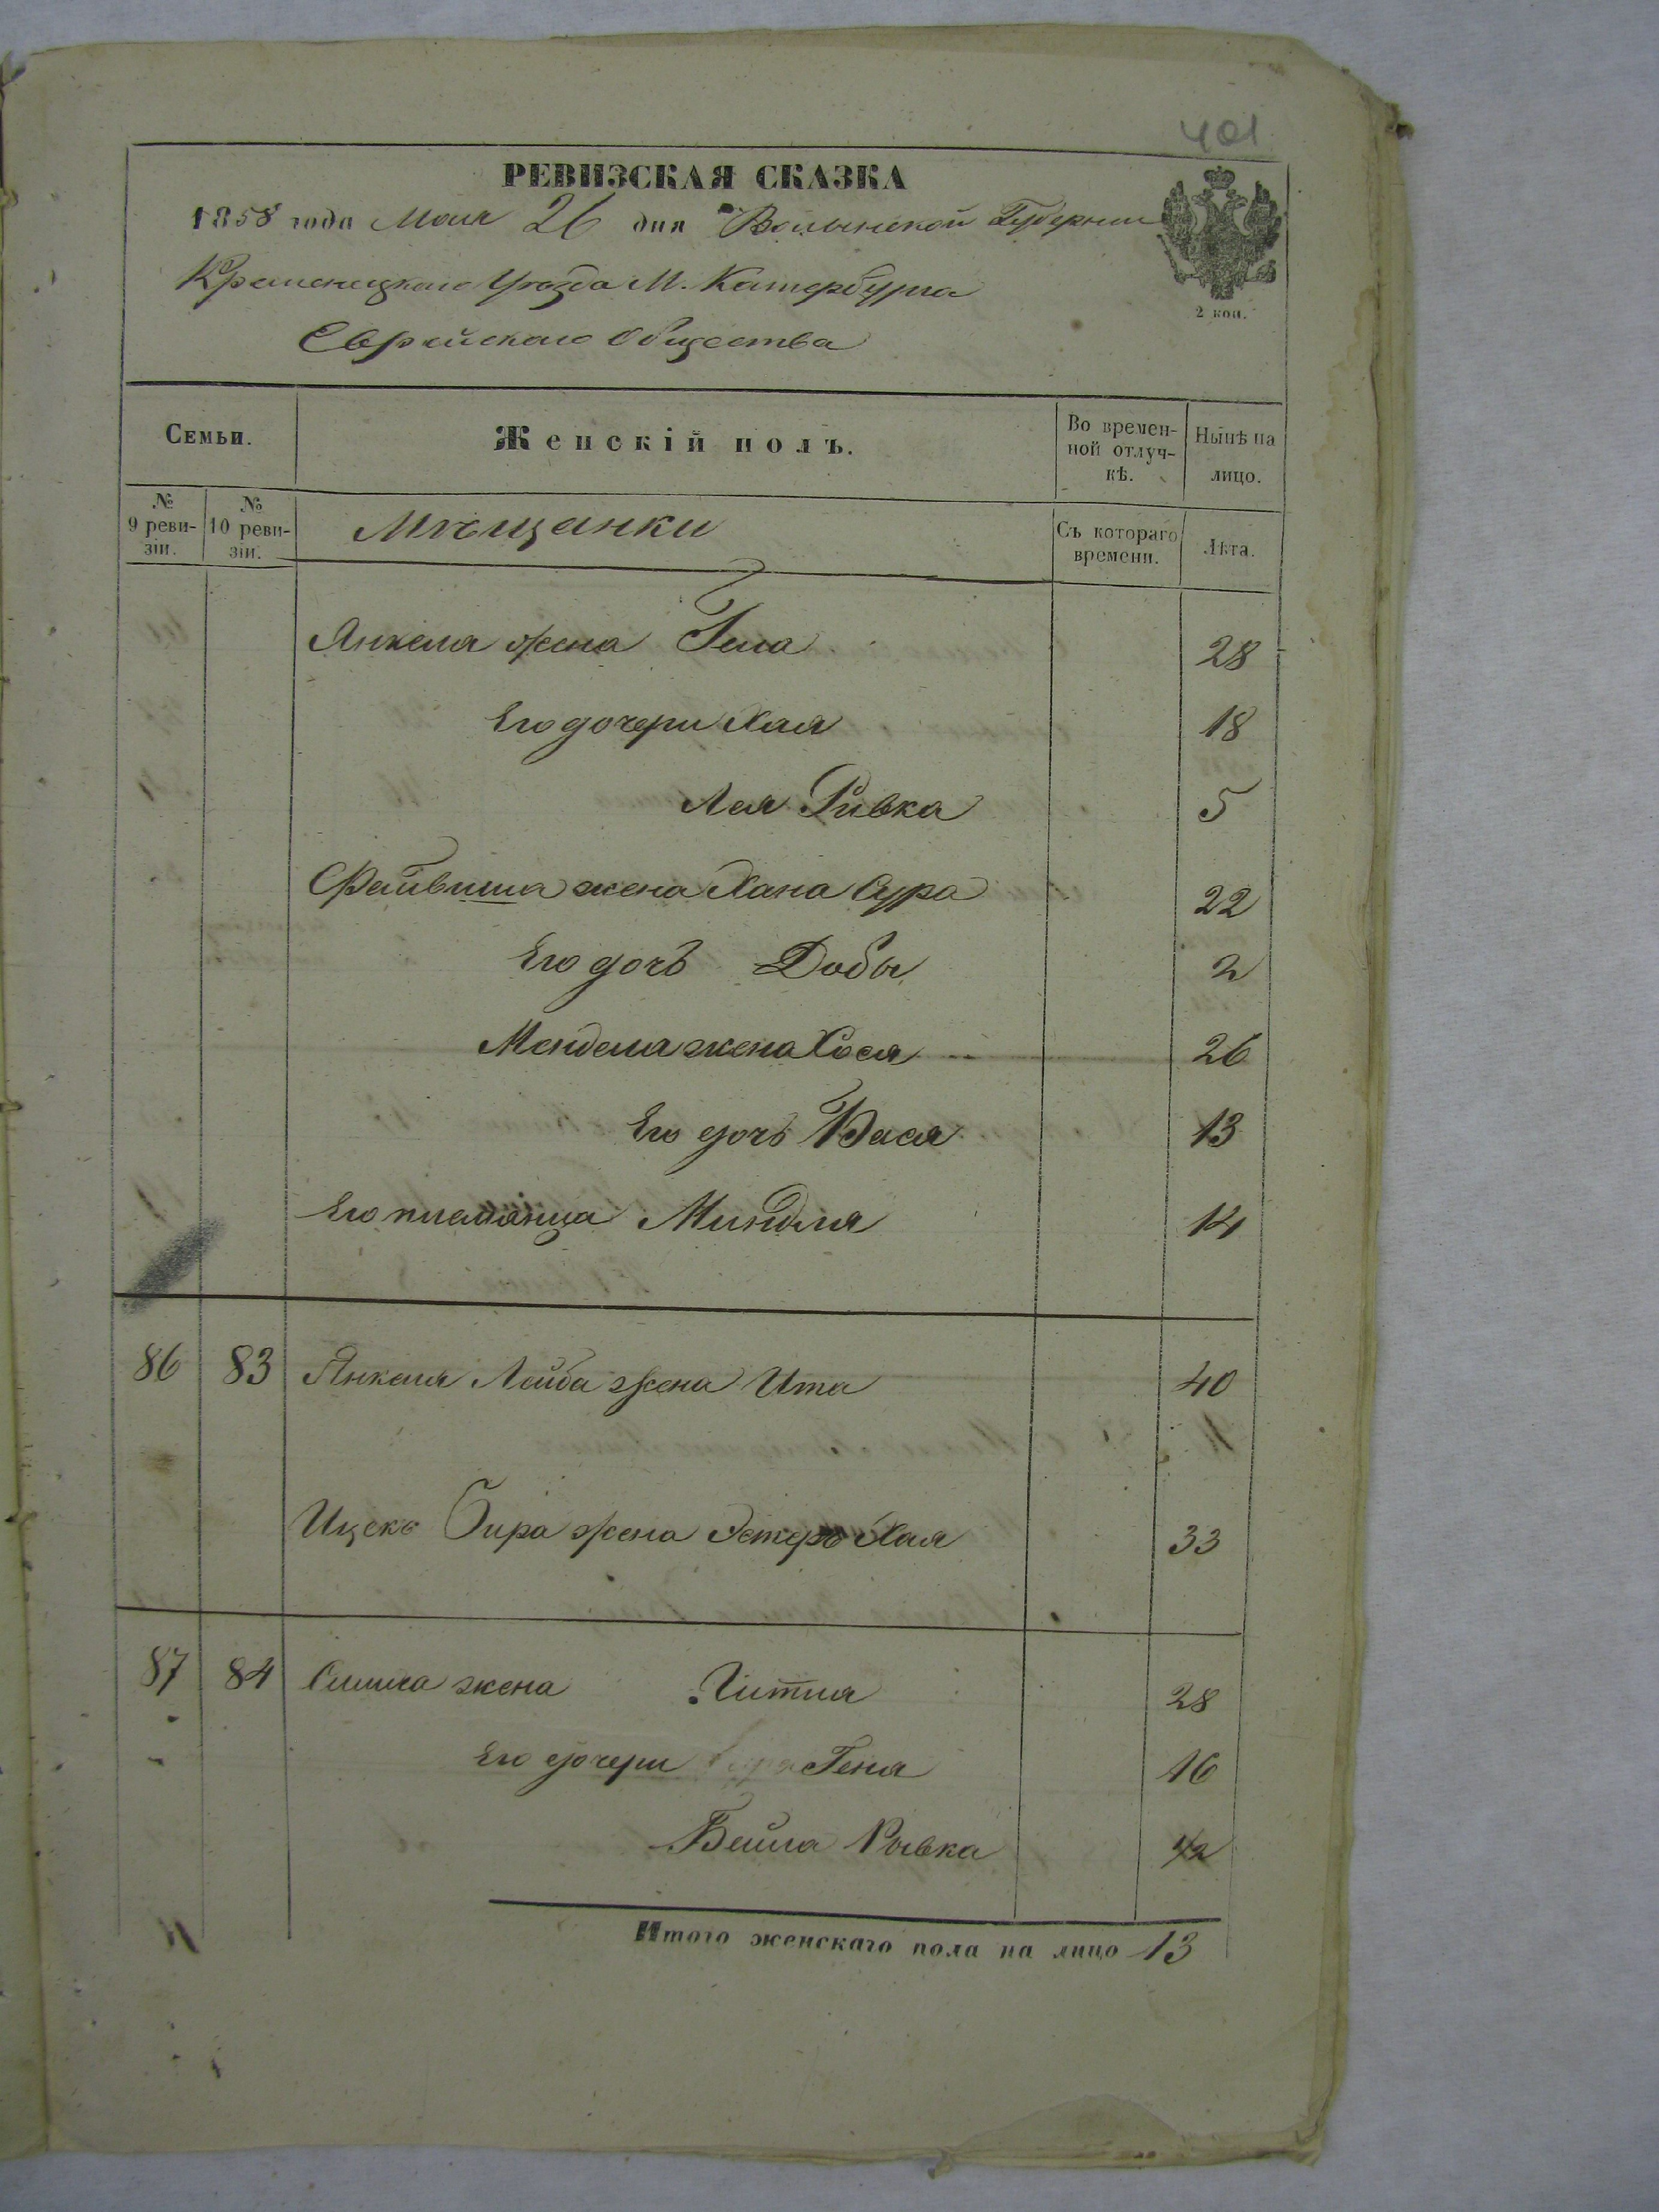 401
РЕВИЗСКАЯ СКАЗКА
1858 года Мая 26 дня Волынской Губернии
Кременецкаго Уѣзда М. Катербурга
Еврейскаго Общества
2 коп.
Семьи. Женскій полъ. Во времен- ной отлуч- кѣ. Нынѣ на лицо.
№ 9 реви- зіи. № 10 реви- зіи. Мѣщанки Съ котораго времени. Лѣта.
Янкеля жена 28
Его дочери Хая 18
Лея Ривка 5
Файвиша жена Хана Сура 22
Его дочь Добы 2
Мендела жена Хося 26
Его дочь Бася 13
Его племяница Миндля 14
86 83 Янкеля Лейба жена Ита 40
Ицско жена Эстеръ Хая 33
87 84 жена 28
Его дочери Геня 16
Бейла Рывка
Итого женскаго пола на лицо 13